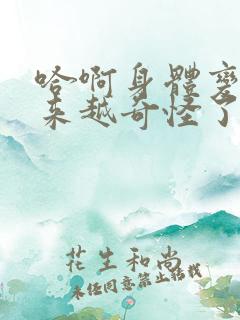 哈啊身體變
來越奇怪了
花生和尚
未經同意禁止轉載